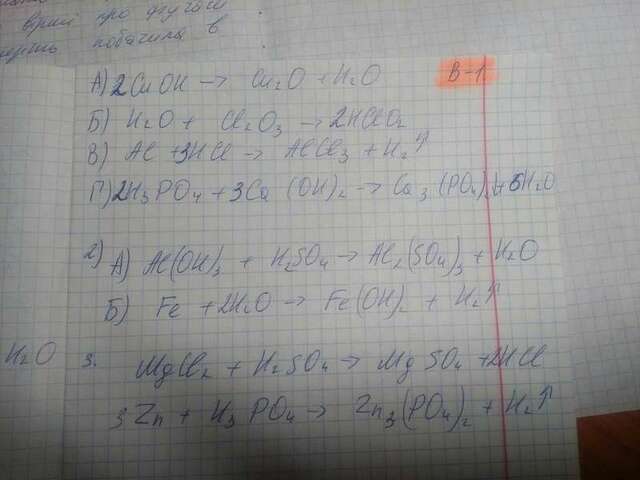 про
побачила в
В-1
А) 2CuOH → Cu₂O + H₂O
Б) H₂O + Cl₂O₃ → 2HClO₂
В) Al + 3HCl → AlCl₃ + H₂↑
Г) 2H₃PO₄ + 3Ca(OH)₂ → Ca₃(PO₄)₂ + 6H₂O
2) А) Al(OH)₃ + H₂SO₄ → Al₂(SO₄)₃ + H₂O
Б) Fe + 2H₂O → Fe(OH)₂ + H₂↑
H₂O
3. MgCl₂ + H₂SO₄ → MgSO₄ + 2HCl
3Zn + H₃PO₄ → Zn₃(PO₄)₂ + H₂↑